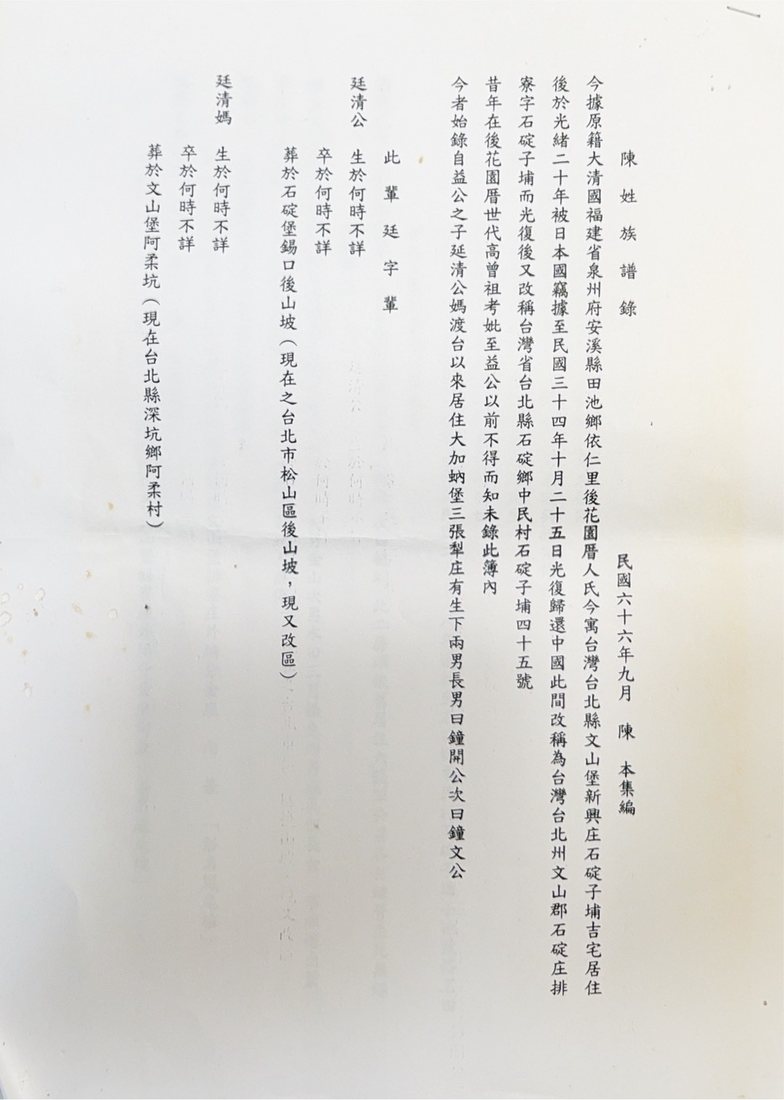 陳姓族譜錄
民國六十六年九月 陳 本集編
今據原籍大清國福建省泉州府安溪縣田池鄉依仁里後花園厝人氏今寓台灣台北縣文山堡新興庄石碇子埔吉宅居住
後於光緒二十年被日本國竊據至民國三十四年十月二十五日光復歸還中國此間改稱為台灣台北州文山郡石碇庄排
寮字石碇子埔而光復後又改稱台灣省台北縣石碇鄉中民村石碇子埔四十五號
昔年在後花園厝世代高曾祖考妣至益公以前不得而知未錄此簿內
今者始錄自益公之子延清公媽渡台以來居住大加蚋堡三張犁庄有生下兩男長男曰鐘開公次曰鐘文公
此輩廷字輩
廷清公 生於何時不詳
卒於何時不詳
葬於石碇堡錫口後山坡（現在之台北市松山區後山坡，現又改區）
廷清媽 生於何時不詳
卒於何時不詳
葬於文山堡阿柔坑（現在台北縣深坑鄉阿柔村）